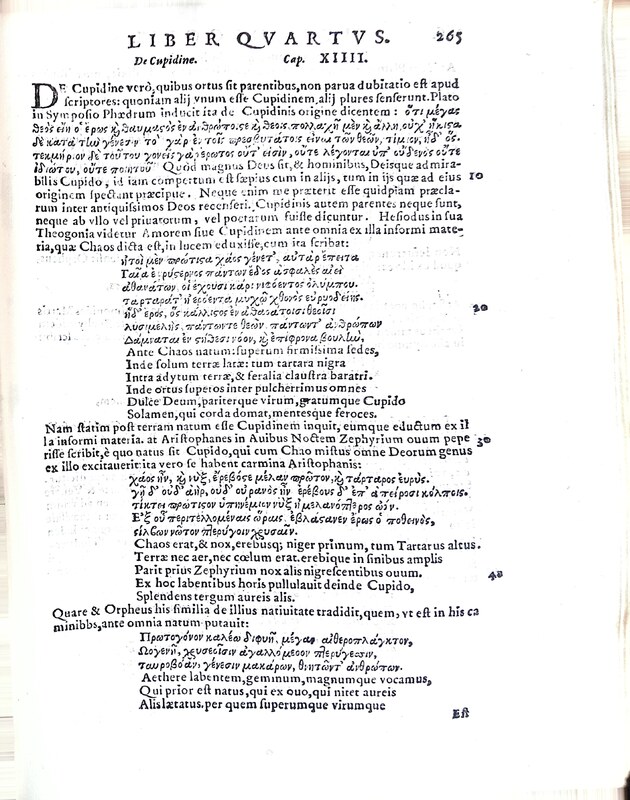 LIBER QVARTVS. 265
De Cupidine. Cap. XIIII.
DE Cupidine verò, quibus ortus sit parentibus, non parua dubitatio est apud
scriptores: quoniam alij vnum esse Cupidinem, alij plures senserunt. Plato
in Symposio Phædrum inducit ita de Cupidinis origine dicentem: ὅτι μέγας
θεὸς εἴη ὁ ἔρως κ̀ θαυμαςὸς ἐν ἀνθρώποις τε κ̀ θεοῖς. πολλαχῆ μὲν κ̀ ἄλλη, οὐχ ἥκιςα
δὲ κατὰ τὴν γένεσιν. τὸ γὰρ ἐν τοῖς πρεσβυτάτοις εἶναι τῶν θεῶν, τίμιον, ἦ δ' ὅς.
τεκμήριον δὲ τούτου γονεῖς γὰρ ἔρωτος οὔτ' εἰσὶν, οὔτε λέγονται ὑπ' οὐδενὸς οὔτε
ἰδιώτου, οὔτε ποιητοῦ. Quòd magnus Deus sit, & hominibus, Deisque admira-
bilis Cupido, id iam compertum est sæpius cum in alijs, tum in ijs quæ ad eius 10
originem spectant præcipue. Neque enim me præterit esse quidpiam præcla-
rum inter antiquissimos Deos recenseri. Cupidinis autem parentes neque sunt,
neque ab vllo vel priuatorum, vel poetarum fuisse dicuntur. Hesiodus in sua
Theogonia videtur Amorem siue Cupidinem ante omnia ex illa informi mate-
ria, quæ Chaos dicta est, in lucem eduxisse, cum ita scribat:
ἤτοι μὲν πρώτιςα χάος γένετ', αὐτὰρ ἔπειτα
Γαῖα εὐρύςερνος πάντων ἕδος ἀσφαλὲς αἰεὶ
ἀθανάτων, οἳ ἔχουσι κάρη νιφόεντος ὀλύμπου.
ταρταρά τ' ἠερόεντα μυχῷ χθονὸς εὐρυοδείης.
ἠδ' ἔρος, ὃς κάλλιςος ἐν ἀθανάτοισι θεοῖσι 20
λυσιμελὴς, πάντων τε θεῶν, πάντων τ' ἀνθρώπων
Δάμναται ἐν ςήθεσι νόον, κ̀ ἐπίφρονα βουλὴν,
Ante Chaos natum: superum firmissima sedes,
Inde solum terræ latæ: tum tartara nigra
Intra adytum terræ, & feralia claustra baratri.
Inde ortus superos inter pulcherrimus omnes
Dulce Deum, pariterque virum, gratumque Cupido
Solamen, qui corda domat, mentesque feroces.
Nam statim post terram natum esse Cupidinem inquit, eumque eductum ex il
la informi materia. at Aristophanes in Auibus Noctem Zephyrium ouum pepe 30
risse scribit, è quo natus sit Cupido, qui cum Chao mistus omne Deorum genus
ex illo excitauerit: ita vero se habent carmina Aristophanis:
χάος ἦν, κ̀ νὺξ, ἔρεβός τε μέλαν πρῶτον, κ̀ τάρταρος εὐρύς.
γῆ δ' οὐδ' ἀὴρ, οὐδ' οὐρανὸς ἦν ἐρέβους δ' ἐν ἀπείροσι κόλποις.
τίκτει πρώτιςον ὑπηνέμιον νὺξ ἡ μελανόπτερος ὠόν.
Ἐξ οὗ περιτελλομέναις ὥραις ἔβλάςανεν ἔρως ὁ ποθεινὸς,
ςίλβων νῶτον πτερύγοιν χρυσαῖν.
Chaos erat, & nox, erebusq; niger primum, tum Tartarus altus.
Terræ nec aer, nec cœlum erat. erebique in sinibus amplis
Parit prius Zephyrium nox alis nigrescentibus ouum.
Ex hoc labentibus horis pullulauit deinde Cupido, 40
Splendens tergum aureis alis.
Quare & Orpheus his similia de illius natiuitate tradidit, quem, vt est in his ca
minibbs, ante omnia natum putauit:
Πρωτόγονον καλέω διφυῆ, μέγαν αἰθερόπλαγκτον,
Ὠογενῆ, χρυσέαισιν ἀγαλλόμενον πτερύγεσσιν,
ταυροβόαν, γένεσιν μακάρων, θνητῶν τ' ἀνθρώπων.
Aethere labentem, geminum, magnumque vocamus,
Qui prior est natus, qui ex ouo, qui nitet aureis
Alis lætatus. per quem superumque virumque
Est